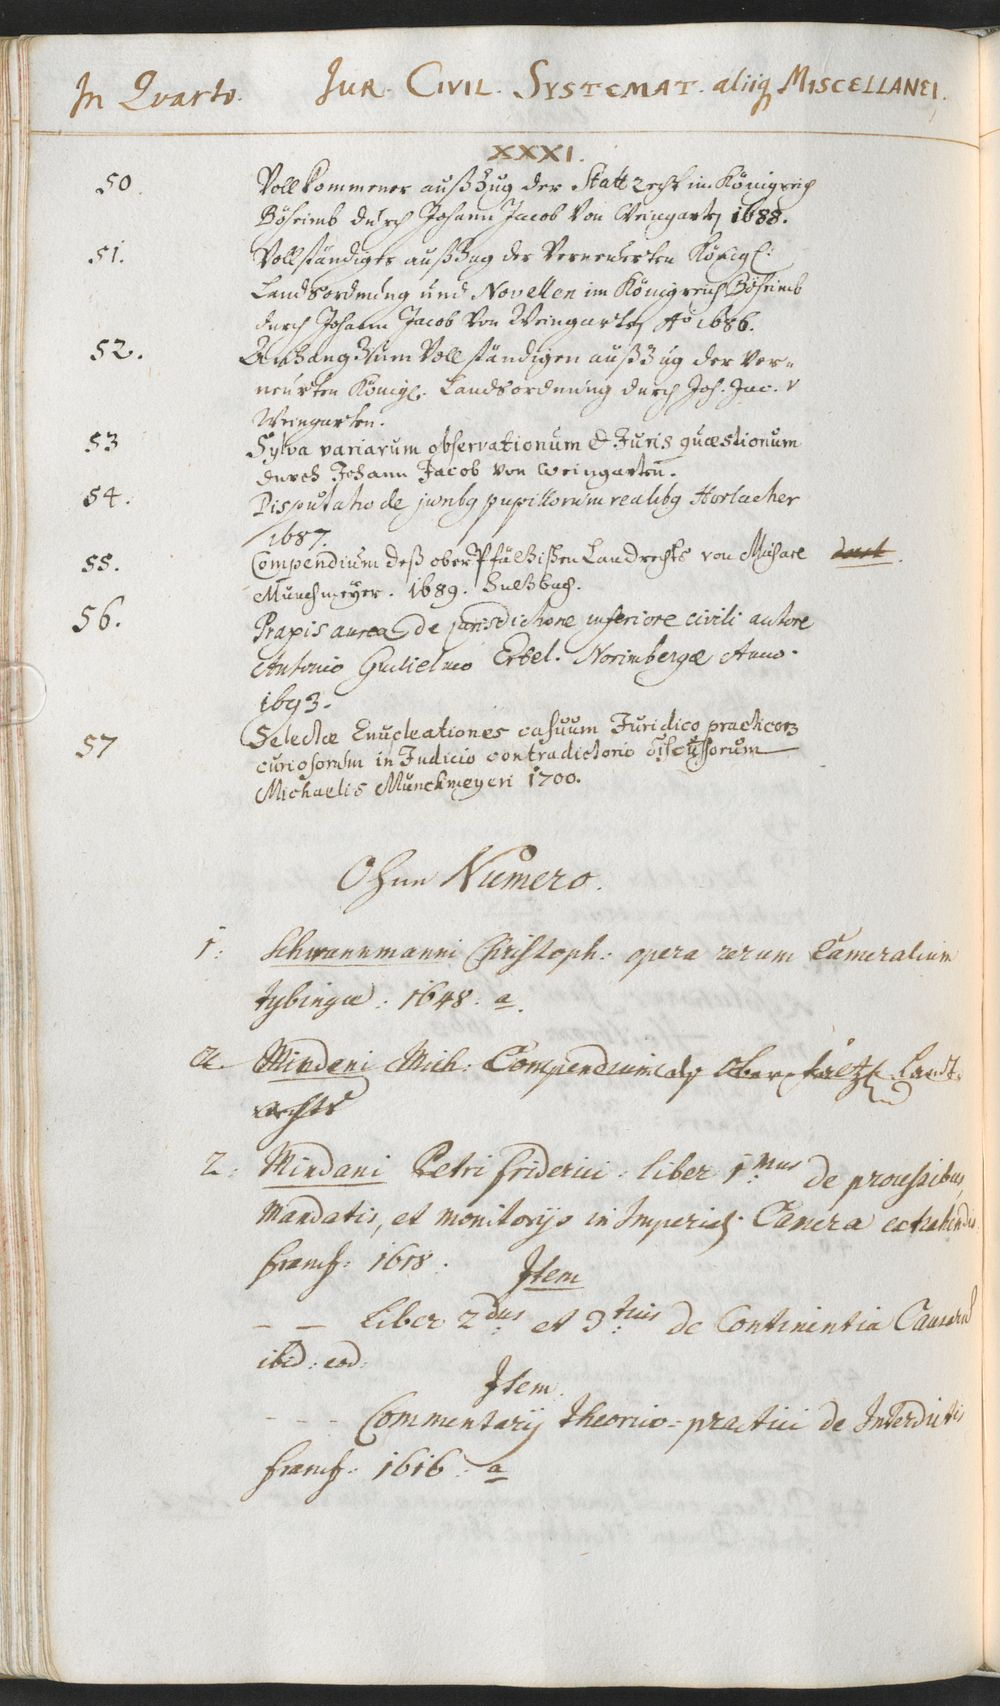 In Qvarto. JUR. CIVIL. SYSTEMAT. aliiq MISCELLANEI.
XXXI.
50. Vollkommener außZug der Statt Recht im Königreich
Böheimb durch Johann Jacob Von Weingarten 1688.
51. Vollständiger außZug der Verneuerten Königl:
Landsordnung und Novellen im Königreich Böheimb
durch Johann Jacob Von Weingarten Ao 1686.
52. Anhang Zum Vollständigen außZug der Ver=
neurten Königl. Landsordnung durch Joh. Jac. V
Weingarten.
53 Sylva variarum observationum & Juris quæstionum
durch Johann Jacob von Weingarten.
54. Disputatio de juribq pupillorum realibq Horlacher
1687.
55. Compendium deß ober Pfältzischen Landrechts von Michael
Münchmeÿer. 1689. Sultzbach.
56. Praxis aurea de jurisdictione inferiore civili autore
Antonio Gulielmo Ertel. Norimbergæ Anno.
1693.
57 Selectæ Enucleationes casuum Juridico practicorz
curiosorum in Judicio contradictorio discussorum
Michaelis Munckmeyeri 1700.
Ohne Numero.
1: Schwannmanni Christoph: opera rerum Cameralium
tybingæ: 1648. a.
a. Mindeni Mich: Compendium des Oberpfaltz. Landt.
rechts
2: Mindani Petri friderici: liber 1mus de processibus,
Mandatis, et monitorijs in Imperiali Camera extrahendis
francf: 1618.
Item
– – Liber 2dus et 3tius de Continentia Causarum
ibid: eod:
Item.
- - - Commentarij theorico-practici de Interdictis
francf: 1616. a